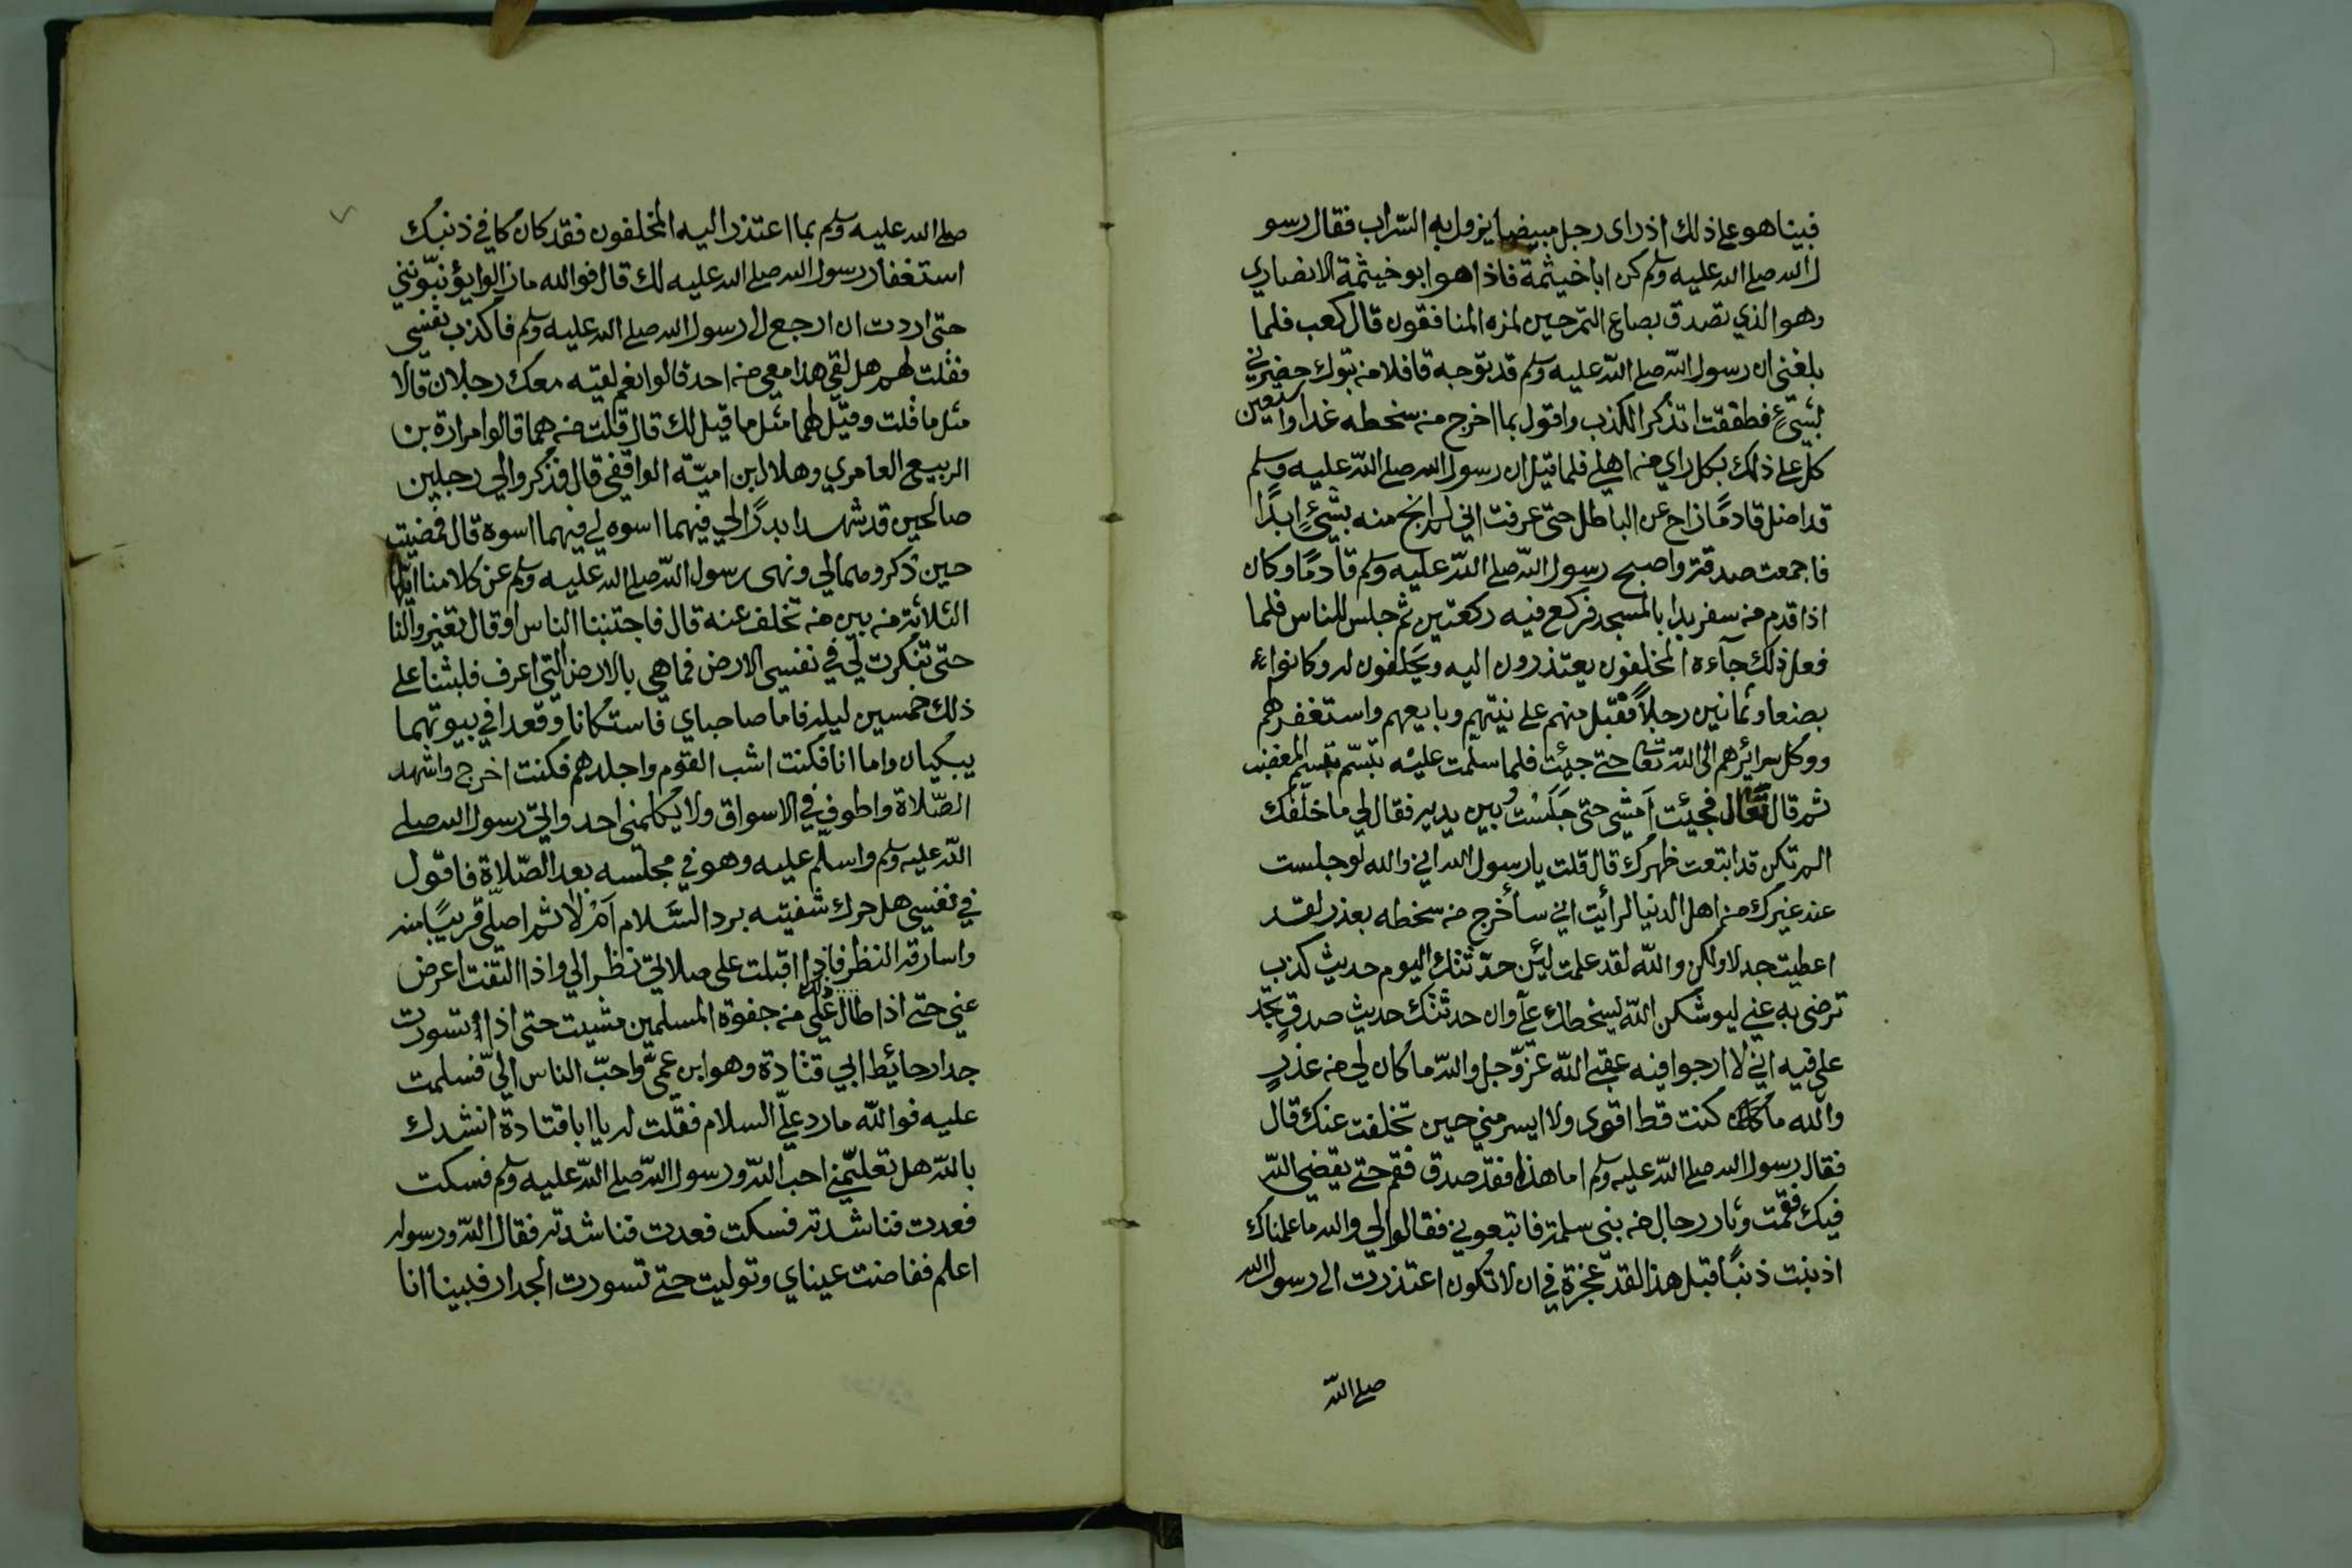 فبينا هو على ذلك اذ راى رجل مبيضا يزول به السّراب فقال رسو
ل الله صلى الله عليه وسلم كن ابا خيثمة فاذا هو ابو خيثمة الانصاري
وهو الذي تصدق بصاع التمر حين لمزه المنافقون قال كعب فلما
بلغني ان رسول الله صلى الله عليه وسلم قد توجه قافلا من تبوك حضرني
بثيّ فطفقت اتذكر الكذب واقول بما اخرج من سخطه غدا واستعين
كل على ذلك بكل راي من اهلي فلما قيل ان رسول الله صلى الله عليه وسلم
قد اضل قادمًا زاح عن الباطل حتى عرفت اني لم انج منه بشيءٍ ابدًا
فاجمعت صدقه واصبح رسول الله صلى الله عليه وسلم قادمًا وكان
اذا قدم من سفر بدا بالمسجد فركع فيه ركعتين ثم جلس للناس فلما
فعل ذلك جآءه المخلفون يعتذرون اليه ويحلفون له وكانوا
بضعا وثمانين رجلاً فقبل منهم على نيتهم وبايعهم واستغفر لهم
ووكل سرائرهم الى الله تعالى حتى جيئت فلما سلمت عليه تبسّم تبسم المغضب
ثم قال تعال فجيئت اَمشي حتى جَلَسْت بين يديه فقال لي ما خلّفك
الم تكن قد ابتعت ظهرك قال قلت يا رسول الله اني والله لو جلست
عند غيرك من اهل الدنيا لرأيت اني سأخرج من سخطه بعذر لقد
اعطيت جدلا ولكن والله لقد علمت لئن حدّثتك اليوم حديث كذب
ترضى به عني ليوشكن الله ليسخطك عليّ وان حدثتك حديث صدقٍ تجد
علي فيه اني لا ارجوا فيه عقبى الله عزّ وجل والله ما كان لي من عذرٍ
والله ما كنت قط اقوى ولا ايسر مني حين تخلفت عنك قال
فقال رسول الله صلى الله عليه وسلم اما هذا فقد صدق فقم حتى يقضي الله
فيك فقمت وثار رجال من بني سلمة فاتبعوني فقالوا لي والله ما علمناك
اذنبت ذنبًا قبل هذا لقد عجزة في ان لا تكون اعتذرت الى رسول الله
صلى الله
صلى الله عليه وسلم بما اعتذر اليه المخلفون فقد كان كافي ذنبك
استغفار رسول الله صلى الله عليه لك قال فوالله ما زالوا يؤنبّونني
حتى اردت ان ارجع الى رسول الله صلى الله عليه وسلم فاكذب نفسي
فقلت لهم هل لقي هذا معي من احد قالوا نعم لقيه معك رجلان قالا
مثل ما قلت وقيل لهما مثل ما قيل لك قال قلت من هما قالوا مرارة بن
الربيع العامري وهلال ابن اميّة الواقفي قال فذكروا لي رجلين
صالحين قد شهدا بدرًا لي فيهما اسوه لي فيهما اسوه قال فمضيت
حين ذكروهما لي ونهى رسول الله صلى الله عليه وسلم عن كلامنا ايّها
الثلاثة من بين من تخلف عنه قال فاجتنبنا الناس او قال تغيروا لنا
حتى تنكرت لي في نفسي الارض فما هي بالارض التي اعرف فلبثنا على
ذلك خمسين ليله فاما صاحباي فاستكانا وقعدا في بيوتهما
يبكيان واما انا فكنت اشب القوم واجلدهم فكنت اخرج واشهد
الصّلاة واطوف في الاسواق ولا يكلمني احد واتي رسول الله صلى
الله عليه وسلم واسلم عليه وهو في مجلسه بعد الصّلاة فاقول
في نفسي هل حرك شفتيه برد السَّلام اَمْ لا ثم اصلّي قريبًا منه
واسارقه النظر فاذا اقبلت على صلاتي نظر الي واذا التفت اعرض
عني حتى اذا طال ذلك علي من جفوة المسلمين مشيت حتى اذا تسورت
جدار حائيط ابي قتادة وهو ابن عمّي واحبّ الناس اليّ فسلمت
عليه فوالله ما رد عليّ السلام فقلت له يا ابا قتادة انشدك
بالله هل تعلمّني احب الله ورسول الله صلى الله عليه وسلم فسكت
فعدت فناشدته فسكت فعدت فناشدته فقال الله ورسوله
اعلم ففاضت عيناي وتوليت حتى تسورت الجدار فبينا انا